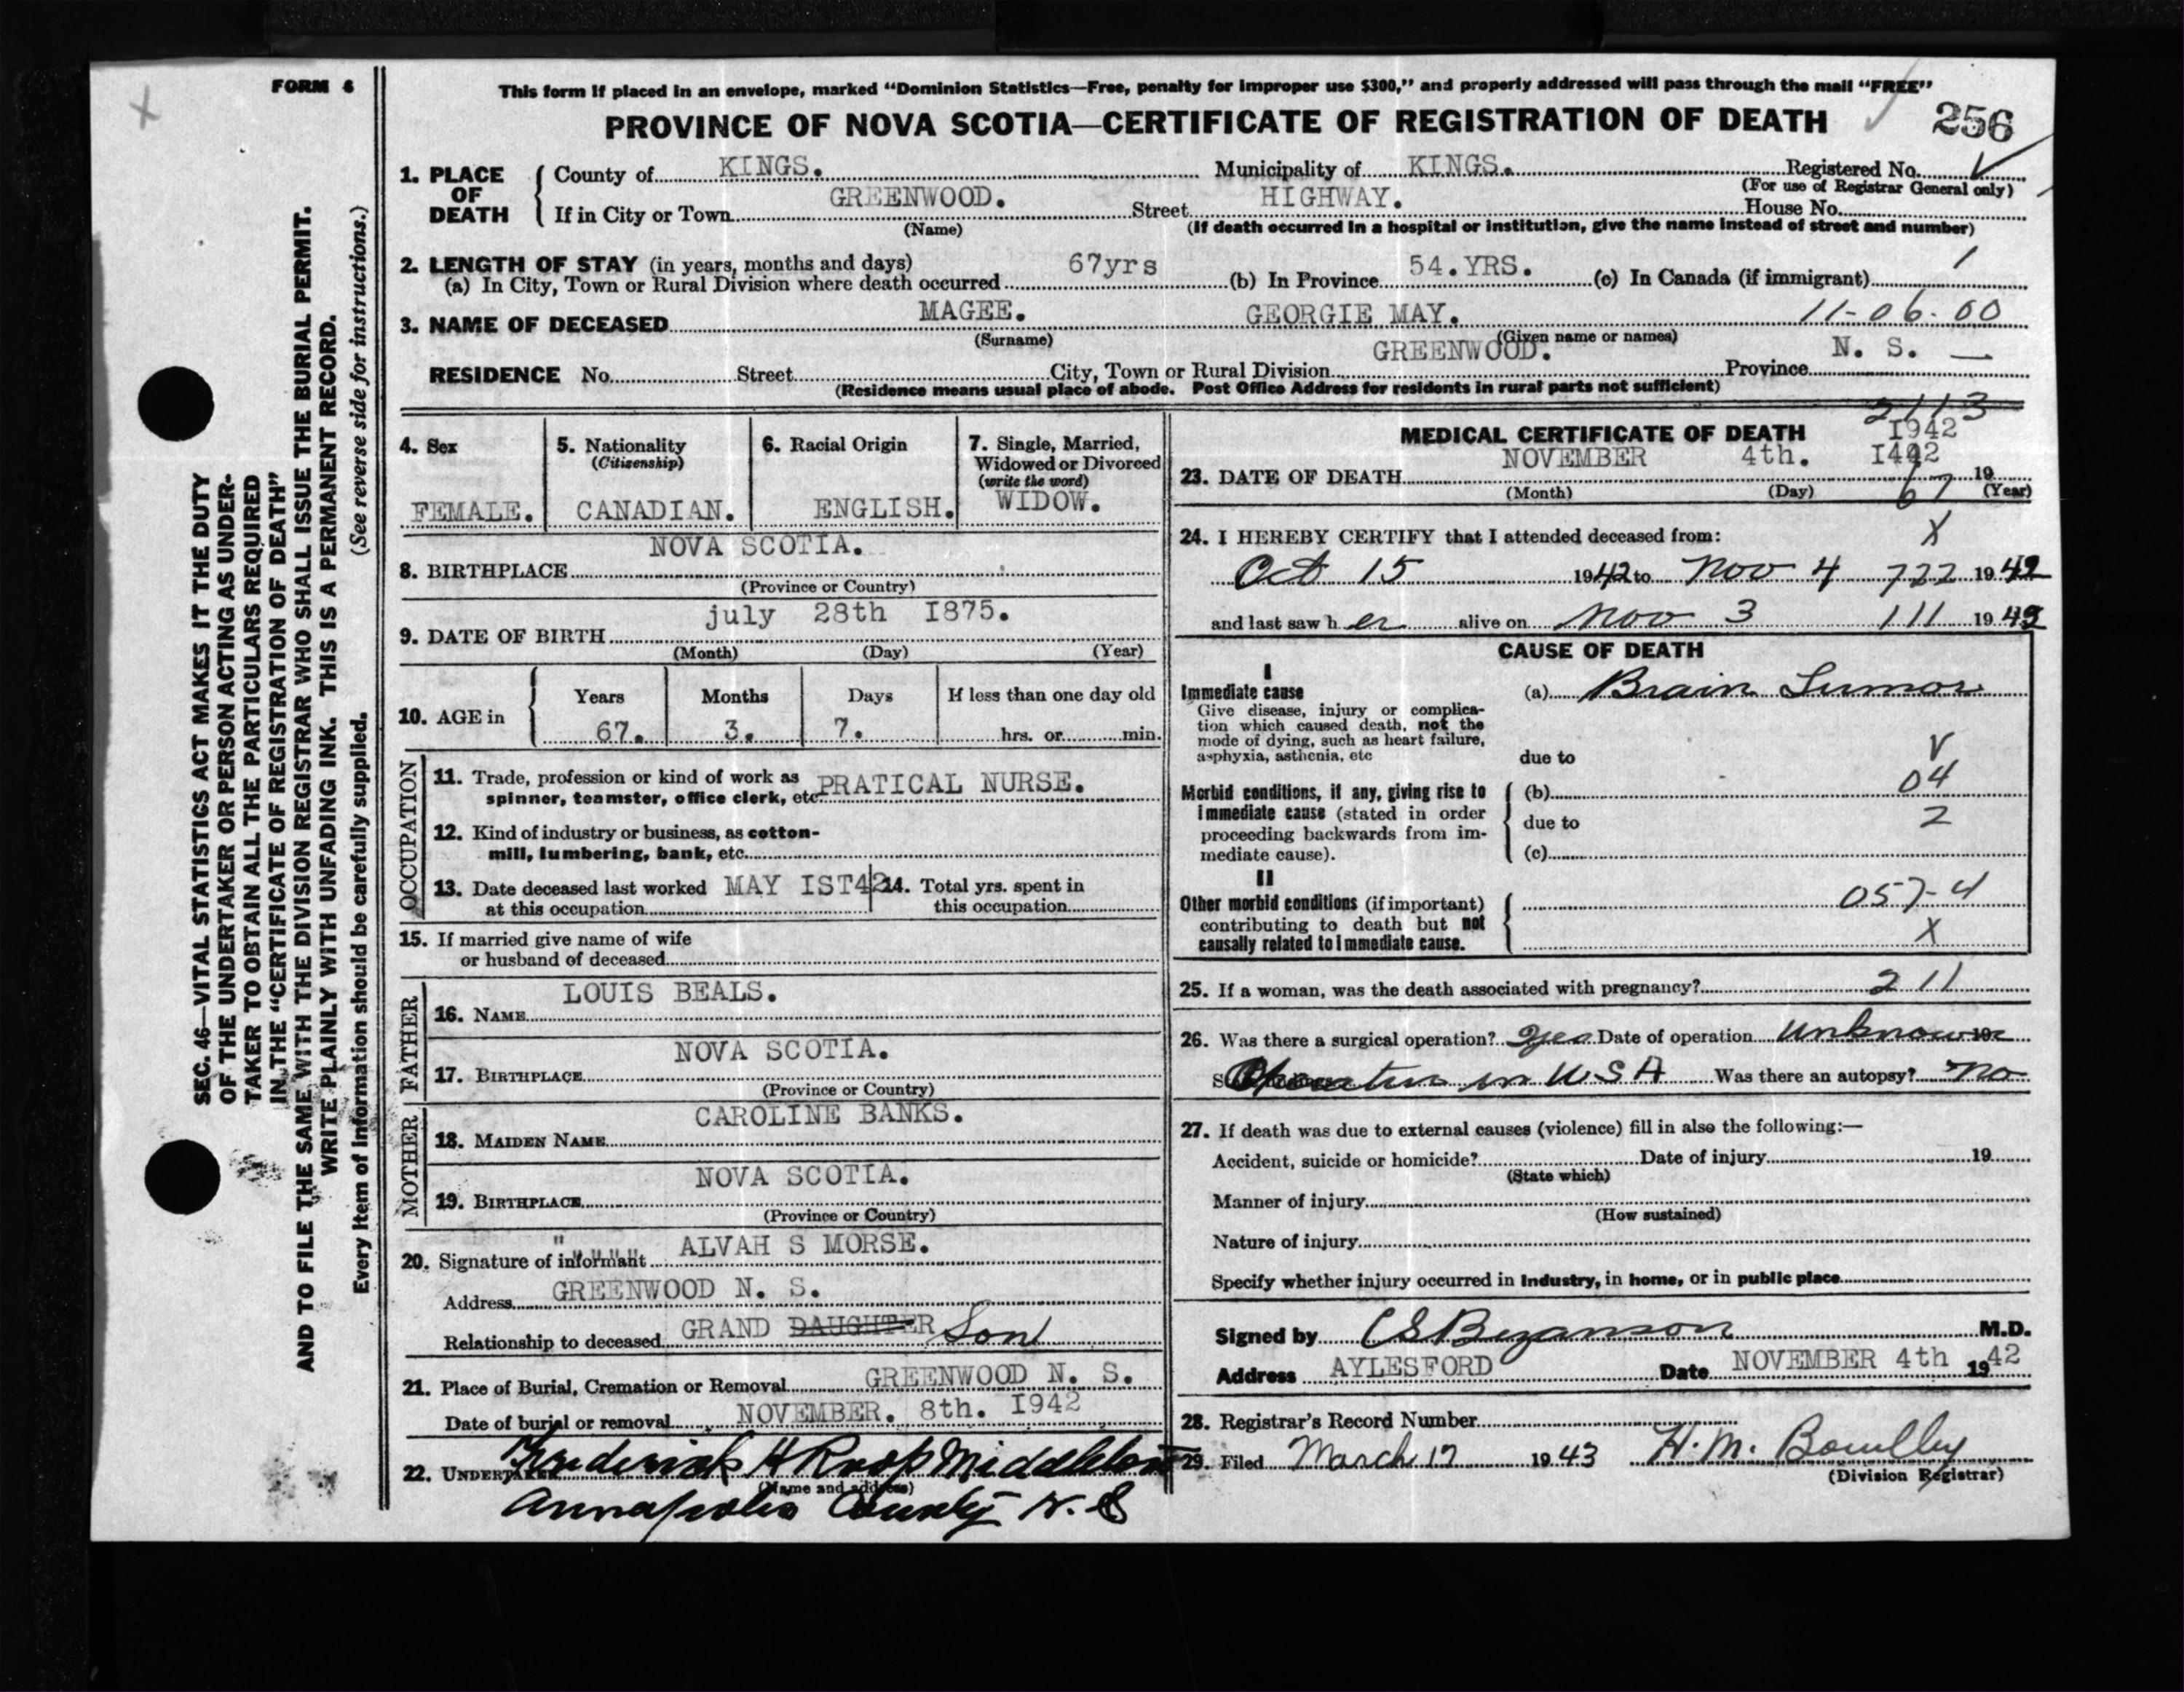 FORM 6
This form if placed in an envelope, marked "Dominion Statistics—Free, penalty for improper use $300," and properly addressed will pass through the mail "FREE"
PROVINCE OF NOVA SCOTIA—CERTIFICATE OF REGISTRATION OF DEATH
256
1. PLACE OF DEATH
County of KINGS. Municipality of KINGS. Registered No.
(For use of Registrar General only)
If in City or Town GREENWOOD. Street HIGHWAY. House No.
(Name) (If death occurred in a hospital or institution, give the name instead of street and number)
2. LENGTH OF STAY (in years, months and days)
(a) In City, Town or Rural Division where death occurred 67yrs (b) In Province 54.YRS. (c) In Canada (if immigrant) 1
3. NAME OF DECEASED MAGEE. GEORGIE MAY. 11-06-00
(Surname) (Given name or names)
RESIDENCE No. Street City, Town or Rural Division GREENWOOD. Province N. S. —
(Residence means usual place of abode. Post Office Address for residents in rural parts not sufficient)
4. Sex
FEMALE.
5. Nationality
(Citizenship)
CANADIAN.
6. Racial Origin
ENGLISH.
7. Single, Married,
Widowed or Divorced
(write the word)
WIDOW.
8. BIRTHPLACE NOVA SCOTIA.
(Province or Country)
9. DATE OF BIRTH july 28th I875.
(Month) (Day) (Year)
10. AGE in
Years Months Days If less than one day old
67. 3. 7. hrs. or min.
OCCUPATION
11. Trade, profession or kind of work as
spinner, teamster, office clerk, etc. PRATICAL NURSE.
12. Kind of industry or business, as cotton-
mill, lumbering, bank, etc.
13. Date deceased last worked MAY IST42
at this occupation
14. Total yrs. spent in
this occupation
15. If married give name of wife
or husband of deceased
FATHER
16. NAME LOUIS BEALS.
17. BIRTHPLACE NOVA SCOTIA.
(Province or Country)
MOTHER
18. MAIDEN NAME CAROLINE BANKS.
19. BIRTHPLACE NOVA SCOTIA.
(Province or Country)
20. Signature of informant " " " " " ALVAH S MORSE.
Address GREENWOOD N. S.
Relationship to deceased GRAND DAUGHTER Son
21. Place of Burial, Cremation or Removal GREENWOOD N. S.
Date of burial or removal NOVEMBER. 8th. I942
22. UNDERTAKER Frederick H Roop Middleton
(Name and address)
Annapolis County N.S
2113
MEDICAL CERTIFICATE OF DEATH
I942
23. DATE OF DEATH NOVEMBER 4th. I442 19
(Month) (Day) 67 (Year)
24. I HEREBY CERTIFY that I attended deceased from: X
Oct 15 1942 to Nov 4 722 1942
and last saw h er alive on Nov 3 111 1942
CAUSE OF DEATH
I
Immediate cause
Give disease, injury or complica-
tion which caused death, not the
mode of dying, such as heart failure,
asphyxia, asthenia, etc
(a) Brain Tumor
due to V
Morbid conditions, if any, giving rise to
immediate cause (stated in order
proceeding backwards from im-
mediate cause).
(b) 04
due to 2
(c)
II
Other morbid conditions (if important)
contributing to death but not
causally related to immediate cause.
057-4
X
25. If a woman, was the death associated with pregnancy? 211
26. Was there a surgical operation? Yes Date of operation Unknown 19
Operation in U S A Was there an autopsy? No
27. If death was due to external causes (violence) fill in also the following:—
Accident, suicide or homicide? Date of injury 19
(State which)
Manner of injury
(How sustained)
Nature of injury
Specify whether injury occurred in industry, in home, or in public place
Signed by C S Bezanson M.D.
Address AYLESFORD Date NOVEMBER 4th 1942
28. Registrar's Record Number
29. Filed March 17 1943 H. M.
(Division Registrar)
SEC. 46—VITAL STATISTICS ACT MAKES IT THE DUTY
OF THE UNDERTAKER OR PERSON ACTING AS UNDER-
TAKER TO OBTAIN ALL THE PARTICULARS REQUIRED
IN THE "CERTIFICATE OF REGISTRATION OF DEATH"
AND TO FILE THE SAME WITH THE DIVISION REGISTRAR WHO SHALL ISSUE THE BURIAL PERMIT.
WRITE PLAINLY WITH UNFADING INK. THIS IS A PERMANENT RECORD.
Every item of information should be carefully supplied. (See reverse side for instructions.)